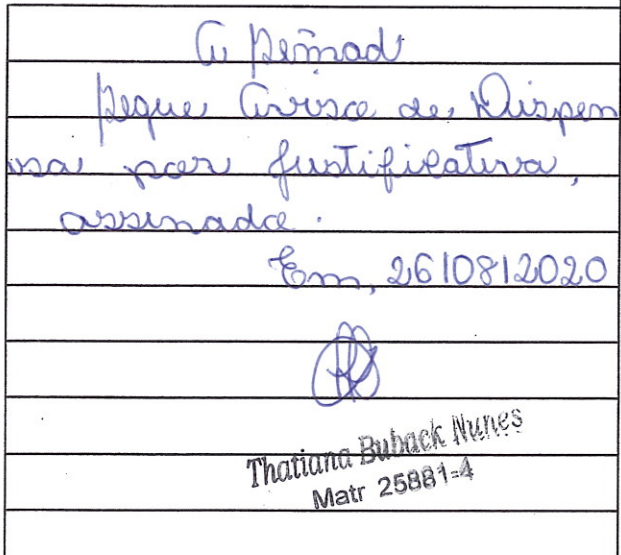 A Semad
Segue Aviso de Dispen
sa por justificativa,
assinado.
Em, 26/08/2020
Thatiana Buback Nunes
Matr 25881-4